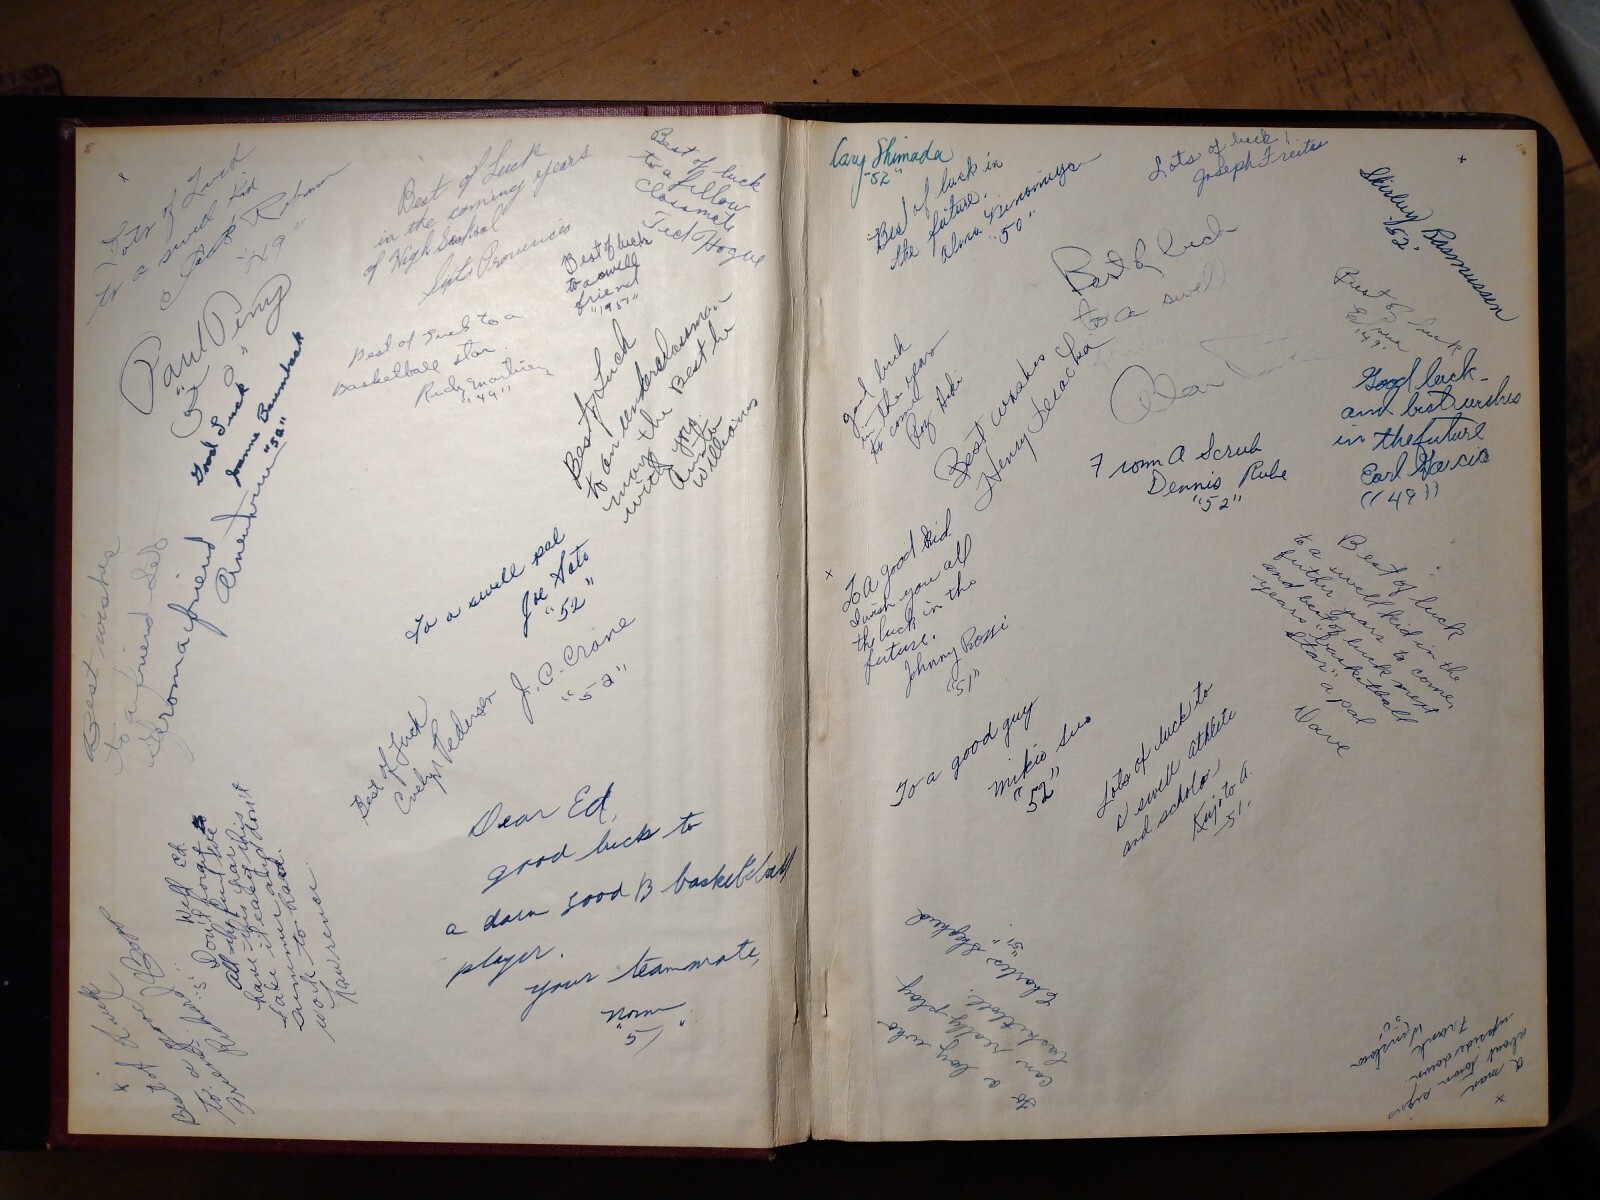 Lots of Luck
to a swell kid
"49"
Best of Luck
in the coming years
of High School
Best of luck
to a fellow
classmate
Ted Hogue
Best of luck
to a swell
friend
"1951"
Paul Perry
"50"
Good Luck
"52"
Best of Luck to a
Basketball star.
Rudy Martinez
"49"
Best of Luck
to an underclassman
may the Best be
with you
Williams
Best wishes
to a friend Ed
from a friend
To a swell pal
Joe Sato
"52"
J. C. Crane
"52"
Best of Luck
Evelyn Pedersen
Dear Ed,
good luck to
a darn good B basketball
player.
your teammate,
Norm
"51"
Well Ed
Don't forget
all the fun we
have had this
Take it easy this
summer and don't
work to hard.
Lawrence
Cary Shimada
"52"
Best of luck in
the future.
Alma Ninomiya
"50"
Lots of luck!
Joseph Freitas
Shirley Rasmussen
"52"
Best of luck
to a swell
Best of luck
"49"
good luck
in the years
to come
Best wishes
Henry Teraoka
From A Scrub
Dennis Rube
"52"
Good luck-
and best wishes
in the future
Earl Garcia
"49"
To A good kid.
I wish you all
the luck in the
future.
Johnny Rossi
"51"
Best of luck
to a swell kid in the
futher years to come,
and best of luck next
years "basketball
star" a pal
Dave
To a good guy
Mikio Suo
"52"
Lots of luck to
a swell athlete
and scholar
Kujoto A.
51.
To a boy who
can really play
basketball.
Charles Shepherd
"51"
A man
about town signs
upside down
Frank Winslow
"50"